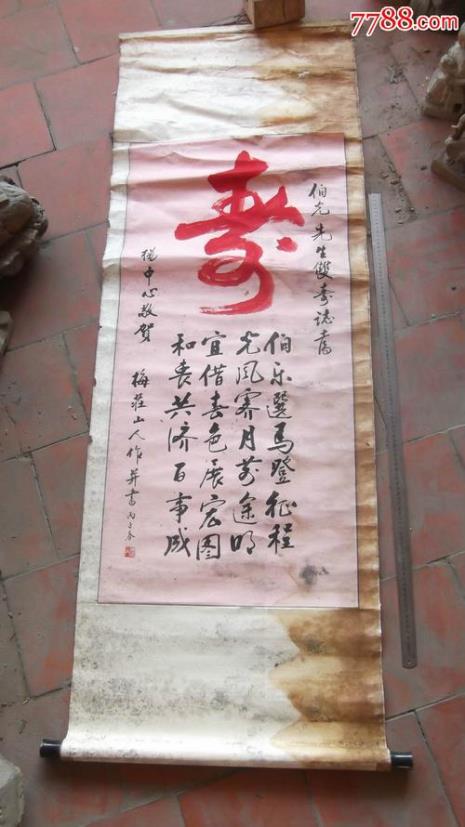 7788.com
壽
伯光先生雙壽誌喜
伯乐選馬登征程
光风霽月前途明
宜借喜色展宏圖
和衷共济百事成
中心敬賀
梅莊山人作并書丙子春